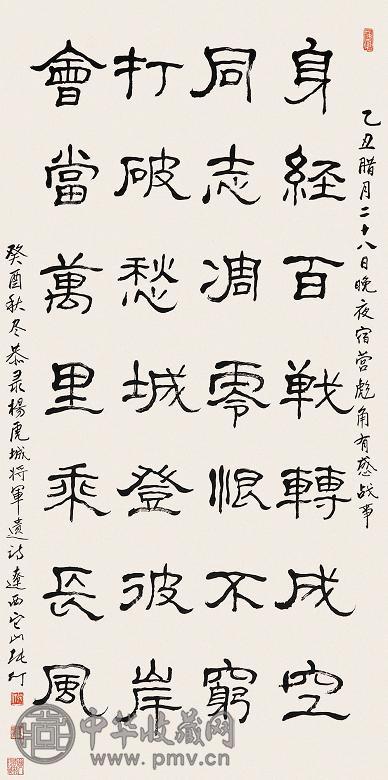 乙丑腊月二十八日晚夜宿营彪角有感战事
身経百戰轉成空
同志凋零恨不窮
打破愁城登彼岸
會當萬里乘長風
癸酉秋冬恭录楊虎城将軍遺詩
中华收藏网
www.pmv.cn